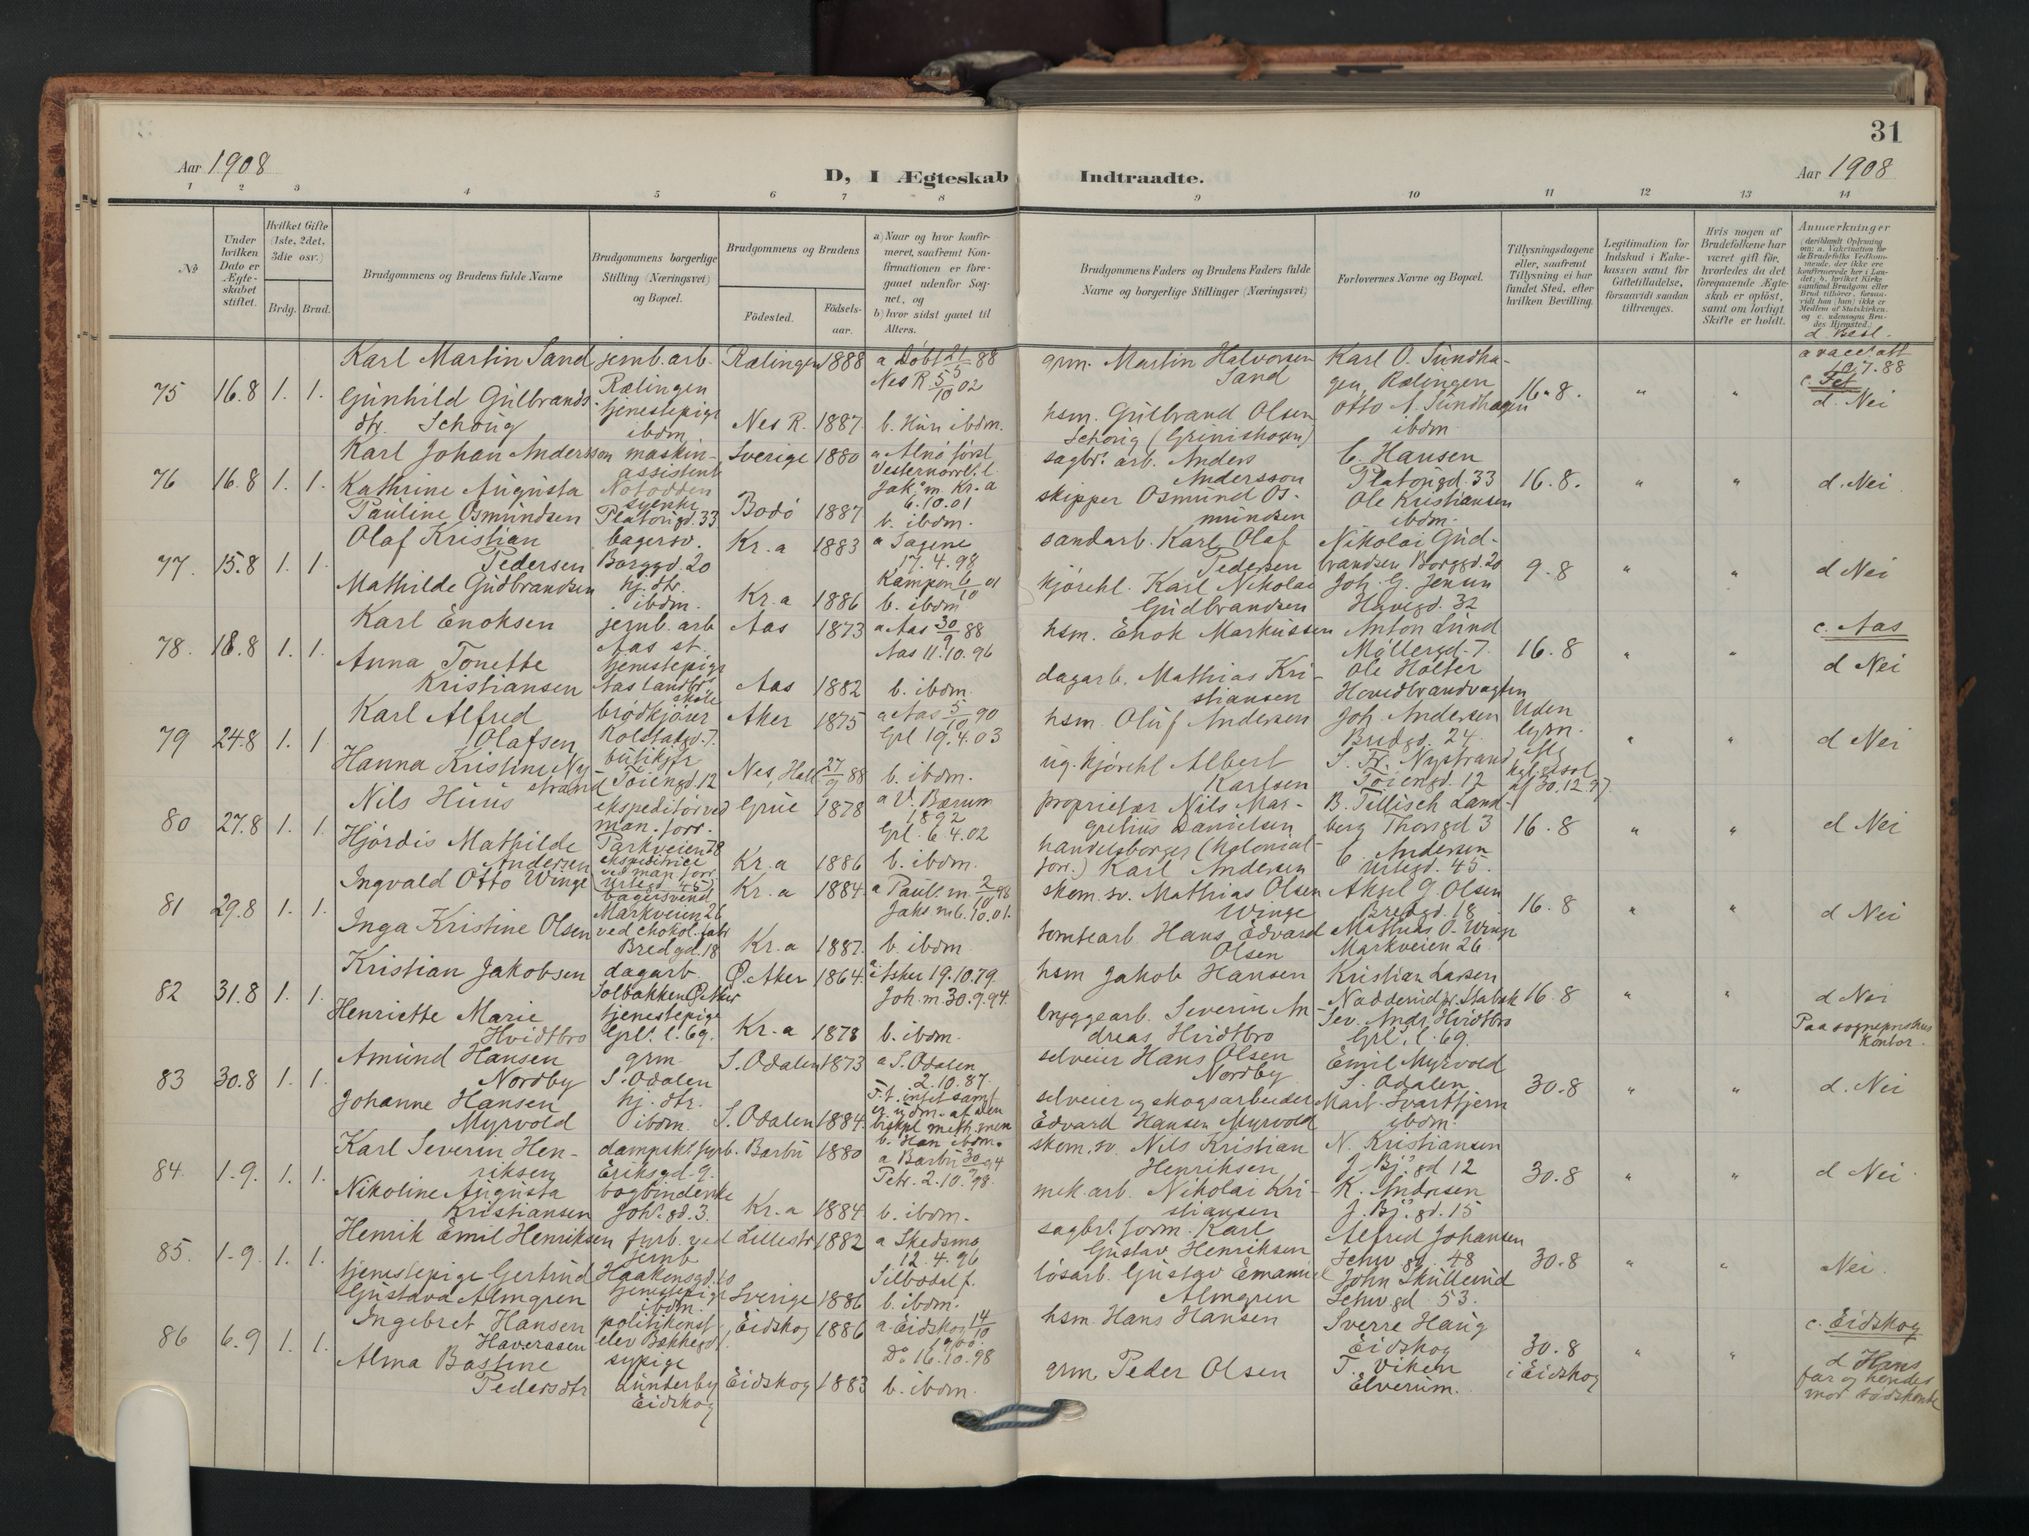 31
Aar 1908
D, I Ægteskab Indtraadte.
Aar 1908
1 2 3 4 5 6 7 8 9 10 11 12 13 14
No
Under hvilken Dato er Ægteskabet stiftet.
Hvilket Gifte (1ste, 2det, 3die osv.)
Brdg. Brud.
Brudgommens og Brudens fulde Navne
Brudgommens borgerlige Stilling (Næringsvei) og Bopæl.
Brudgommens og Brudens
Födested.
Födsels-aar.
a) Naar og hvor konfirmeret, saafremt Konfirmationen er foregaaet udenfor Sognet, og
b) hvor sidst gaaet til Alters.
Brudgommens Faders og Brudens Faders fulde Navne og borgerlige Stillinger (Næringsvei)
Forlovernes Navne og Bopæl.
Tillysningsdagene eller, saafremt Tillysning ei har fundet Sted, efter hvilken Bevilling.
Legitimation for Indskud i Enkekassen samt for Giftetilladelse, forsaavidt saadan tiltrænges.
Hvis nogen af Brudefolkene har været gift før, hvorledes da det foregaaende Ægteskab er oplöst, samt om lovligt Skifte er holdt.
Anmærkninger
d. Besl.
75 16.8 1. 1.
Karl Martin Sand
jernb. arb.
Rælingen
Rælingen 1888
a Døbt 21/5 88
Nes R 5/10 02
grm. Martin Halvorsen
Sand
Karl O. Sundha-
gen, Rælingen
16.8.
"
"
a vacc. att
10.7.88
c. Fet
d. Nei
Gunhild Gulbrands
dtr. Schöug
tjenestepige
ibdm
Nes R. 1887.
b. Hur ibdm.
hsm. Gulbrand Olsen
Schöug (Grinishagen)
Otto A. Sundhagen
ibdm
76 16.8 1. 1.
Karl Johan Andersson
maskin-
assistent
Notodden
Sverige 1880
a Alnö först
Vesternorrl. l.
Jak. m. Kr.a
6.10.01
b. ibdm.
sagbr. arb. Anders
Andersson
C. Hansen
Platousgd. 33
16.8.
"
"
d. Nei
Kathrine Augusta
Pauline Osmundsen
syerske
Platousgd. 33
Bodö 1887
skipper Osmund Os-
mundsen
Ole Kristiansen
ibdm.
77 15.8 1. 1.
Olaf Kristian
Pedersen
bagersv.
Borggd. 20
Kr.a 1883
a Sagene
17.4.98
sandarb. Karl Olaf
Pedersen
Nikolai Gud-
brandsen Borggd. 20
9.8
"
"
d Nei
Mathilde Gudbrandsen
hj. dtr.
ibdm.
Kr.a 1886
Kampen 6/10 01
b. ibdm
kjörekl. Karl Nikolai
Gudbrandsen
Joh. G. Jensen
Havegd. 32
78. 18.8 1. 1.
Karl Enoksen
jernb. arb
Aas st.
Aas 1873
a Aas 30/9 88
Aas 11.10.96
hsm. Enok Markussen
Anton Lund
Møllergd. 7.
16.8
"
"
c. Aas
d Nei
Anna Tonette
Kristiansen
tjenestepige
Aas landbr.
skole
Aas 1882
b. ibdm.
dagarb. Mathias Kri-
stiansen
Ole Holter
Hovedbrandvagten
79 24.8 1. 1
Karl Alfred
Olafsen
brödkjører
Rolfstadgd. 7.
Aker 1875
a Aas 5/10 90
Grl 19.4.03
hsm. Oluf Andersen
Joh. Andersen
Bredgd. 24.
Uden
lysn.
efter
kgl. resol
af 30.12.97
"
"
d Nei
Hanna Kristine Ny
strand
butikjfr
Töiengd. 12
Nes, Hall 27/9 88
b. ibdm.
ug. kjörekl Albert
Karlsen
S. Fr. Nystrand
Töiengd. 12
80 27.8 1. 1.
Nils Huus
ekspeditör ved
man. forr.
Parkveien 78
Grue 1878
a V. Bærum
1892
Grl. 6.4.02
proprietær Nils Mar-
grelius Danielsen
B. Tillisch Land-
berg Thorsgd 3
16.8
"
"
d Nei
Hjördis Mathilde
Andersen
ekspeditrice
ved man. forr.
Urtegd 45
Kr.a 1886
b. ibdm.
handelsborger (Kolonial-
forr.) Karl Andersen
C. Andersen
Urtegd. 45.
81 29.8 1. 1.
Ingvald Otto Winge
bagersvend
Markveien 26
Kr.a 1884
a Paul. m. 2/10 98
Jaks. m 6.10.01.
skom. sv. Mathias Olsen
Winge
Aksel G. Olsen
Bredgd. 18
16.8
"
"
d Nei
Inga Kristine Olsen
ved chokol. fabr
Bredgd. 18
Kr.a 1887.
b. ibdm.
tomtearb. Hans Edvard
Olsen
Mathias O. Winge
Markveien 26.
82 31.8 1. 1.
Kristian Jakobsen
dagarb.
Solbakken Ø. Aker
Ø. Aker 1864.
a Asker 19.10.79.
Joh. m. 30.9.94.
hsm Jakob Hansen
Kristian Larsen
Nadderud pr. Stabæk
16.8
"
"
d Nei
Paa sogneprestens
Kontor.
Henriette Marie
Hvidtbro
tjenestepige
Grl. l. 69.
Kr.a 1878
b. ibdm.
bryggearb. Severin An-
dreas Hvidtbro
Sev. Andr. Hvidtbro
Grl. l. 69.
83 30.8 1. 1.
Amund Hansen
Nordby
grm.
S. Odalen
S. Odalen 1873
a S. Odalen
2.10.87.
selveier Hans Olsen
Nordby
Emil Myrvold
S. Odalen
30.8
"
"
d. Nei
Johanne Hansen
Myrvold
hj. dtr.
ibdm.
S. Odalen 1884.
b. Han ibdm.
selveier og skogsarbeider
Edvard Hansen Myrvold
Mart. Svarttjern
ibdm.
84. 1.9. 1. 1.
Karl Severin Hen-
riksen
dampsk. fyrb.
Eriksgd. 9.
Barbu 1880
a Barbu 30/9 94
Petr. 2.10.98.
skom. sv. Nils Kristian
Henriksen
N. Kristiansen
J. Bj. gd 12
30.8
"
"
d Nei
Nikoline Augusta
Kristiansen
bogbinderske
Joh. gd. 3.
Kr.a 1884
b. ibdm.
mek. arb. Nikolai Kri-
stiansen
K. Andresen
J. Bj. gd. 15
85. 1.9. 1. 1.
Henrik Emil Henriksen
fyrb. ved
jernb
Haakonsgd. 10
Lillestr 1882
a Skedsmo
12.4.96
sagbr. form. Karl
Gustav Henriksen
Alfred Johansen
Schw. gd. 48
30.8
"
"
Nei.
tjenestepige Gertrud
Gustava Almgren
tjenestepige
ibdm.
Sverige 1886
Silbodal f.
b. ibdm.
lösarb. Gustav Emanuel
Almgren
John Skullerud
Schw. gd. 53.
86 6.9 1. 1.
Ingebret Hansen
Haveraasen
politikonst.
elev Bakkegd 1.
Eidskog 1886
a Eidskog 14/10
1900.
Do 16.10.98
hsm. Hans Hansen
Sverre Haug
Eidskog
30.8
i Eidskog
"
"
c. Eidskog
d Hans
far og hendes
mor sødskende
Alma Bastine
Pedersdtr
sypige
Lunterby
Eidskog
Eidskog 1883
b. ibdm.
grm. Peder Olsen
T. Viken
Elverum.